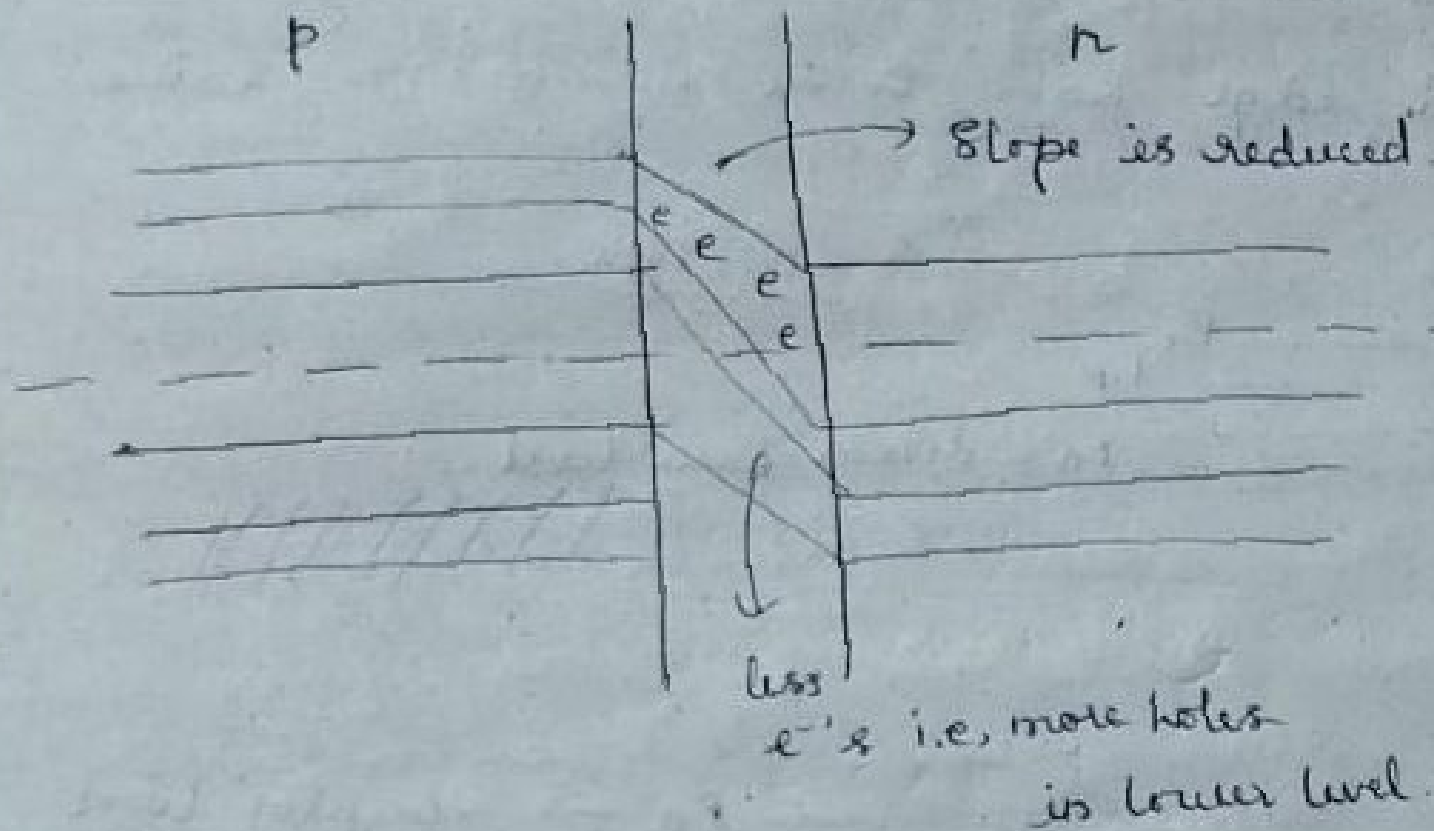 p
n
Slope is reduced.
e
e
e
e
less
e⁻'s i.e, more holes
in lower level.